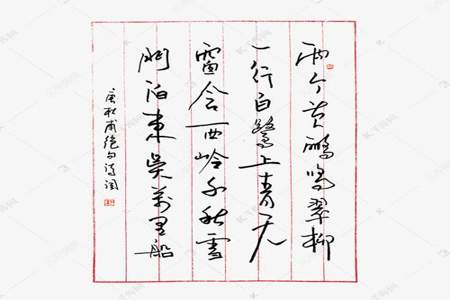 两个黄鹂鸣翠柳
一行白鹭上青天
窗含西岭千秋雪
门泊東吴萬里船
唐杜甫绝句诗